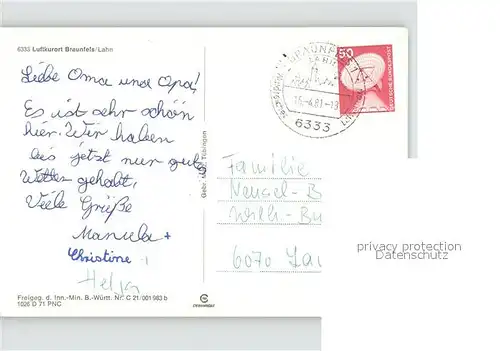 6333 Luftkurort Braunfels/Lahn
Liebe Oma und Opa!
Es ist sehr schön
hier. Wir haben
bis jetzt nur gutes
Wetter gehabt,
Viele Grüße
Manuela +
Christine
Helga
Freigeg. d. Inn.-Min. B.-Württ. Nr. C 21/001 983 b
1026 D 71 PNC
Gebr. Metz, Tübingen
BRAUNFELS
6333
50
DEUTSCHE BUNDESPOST
Familie
Wensel-B
Wilh.-Bu
6070 La
privacy protection
Datenschutz